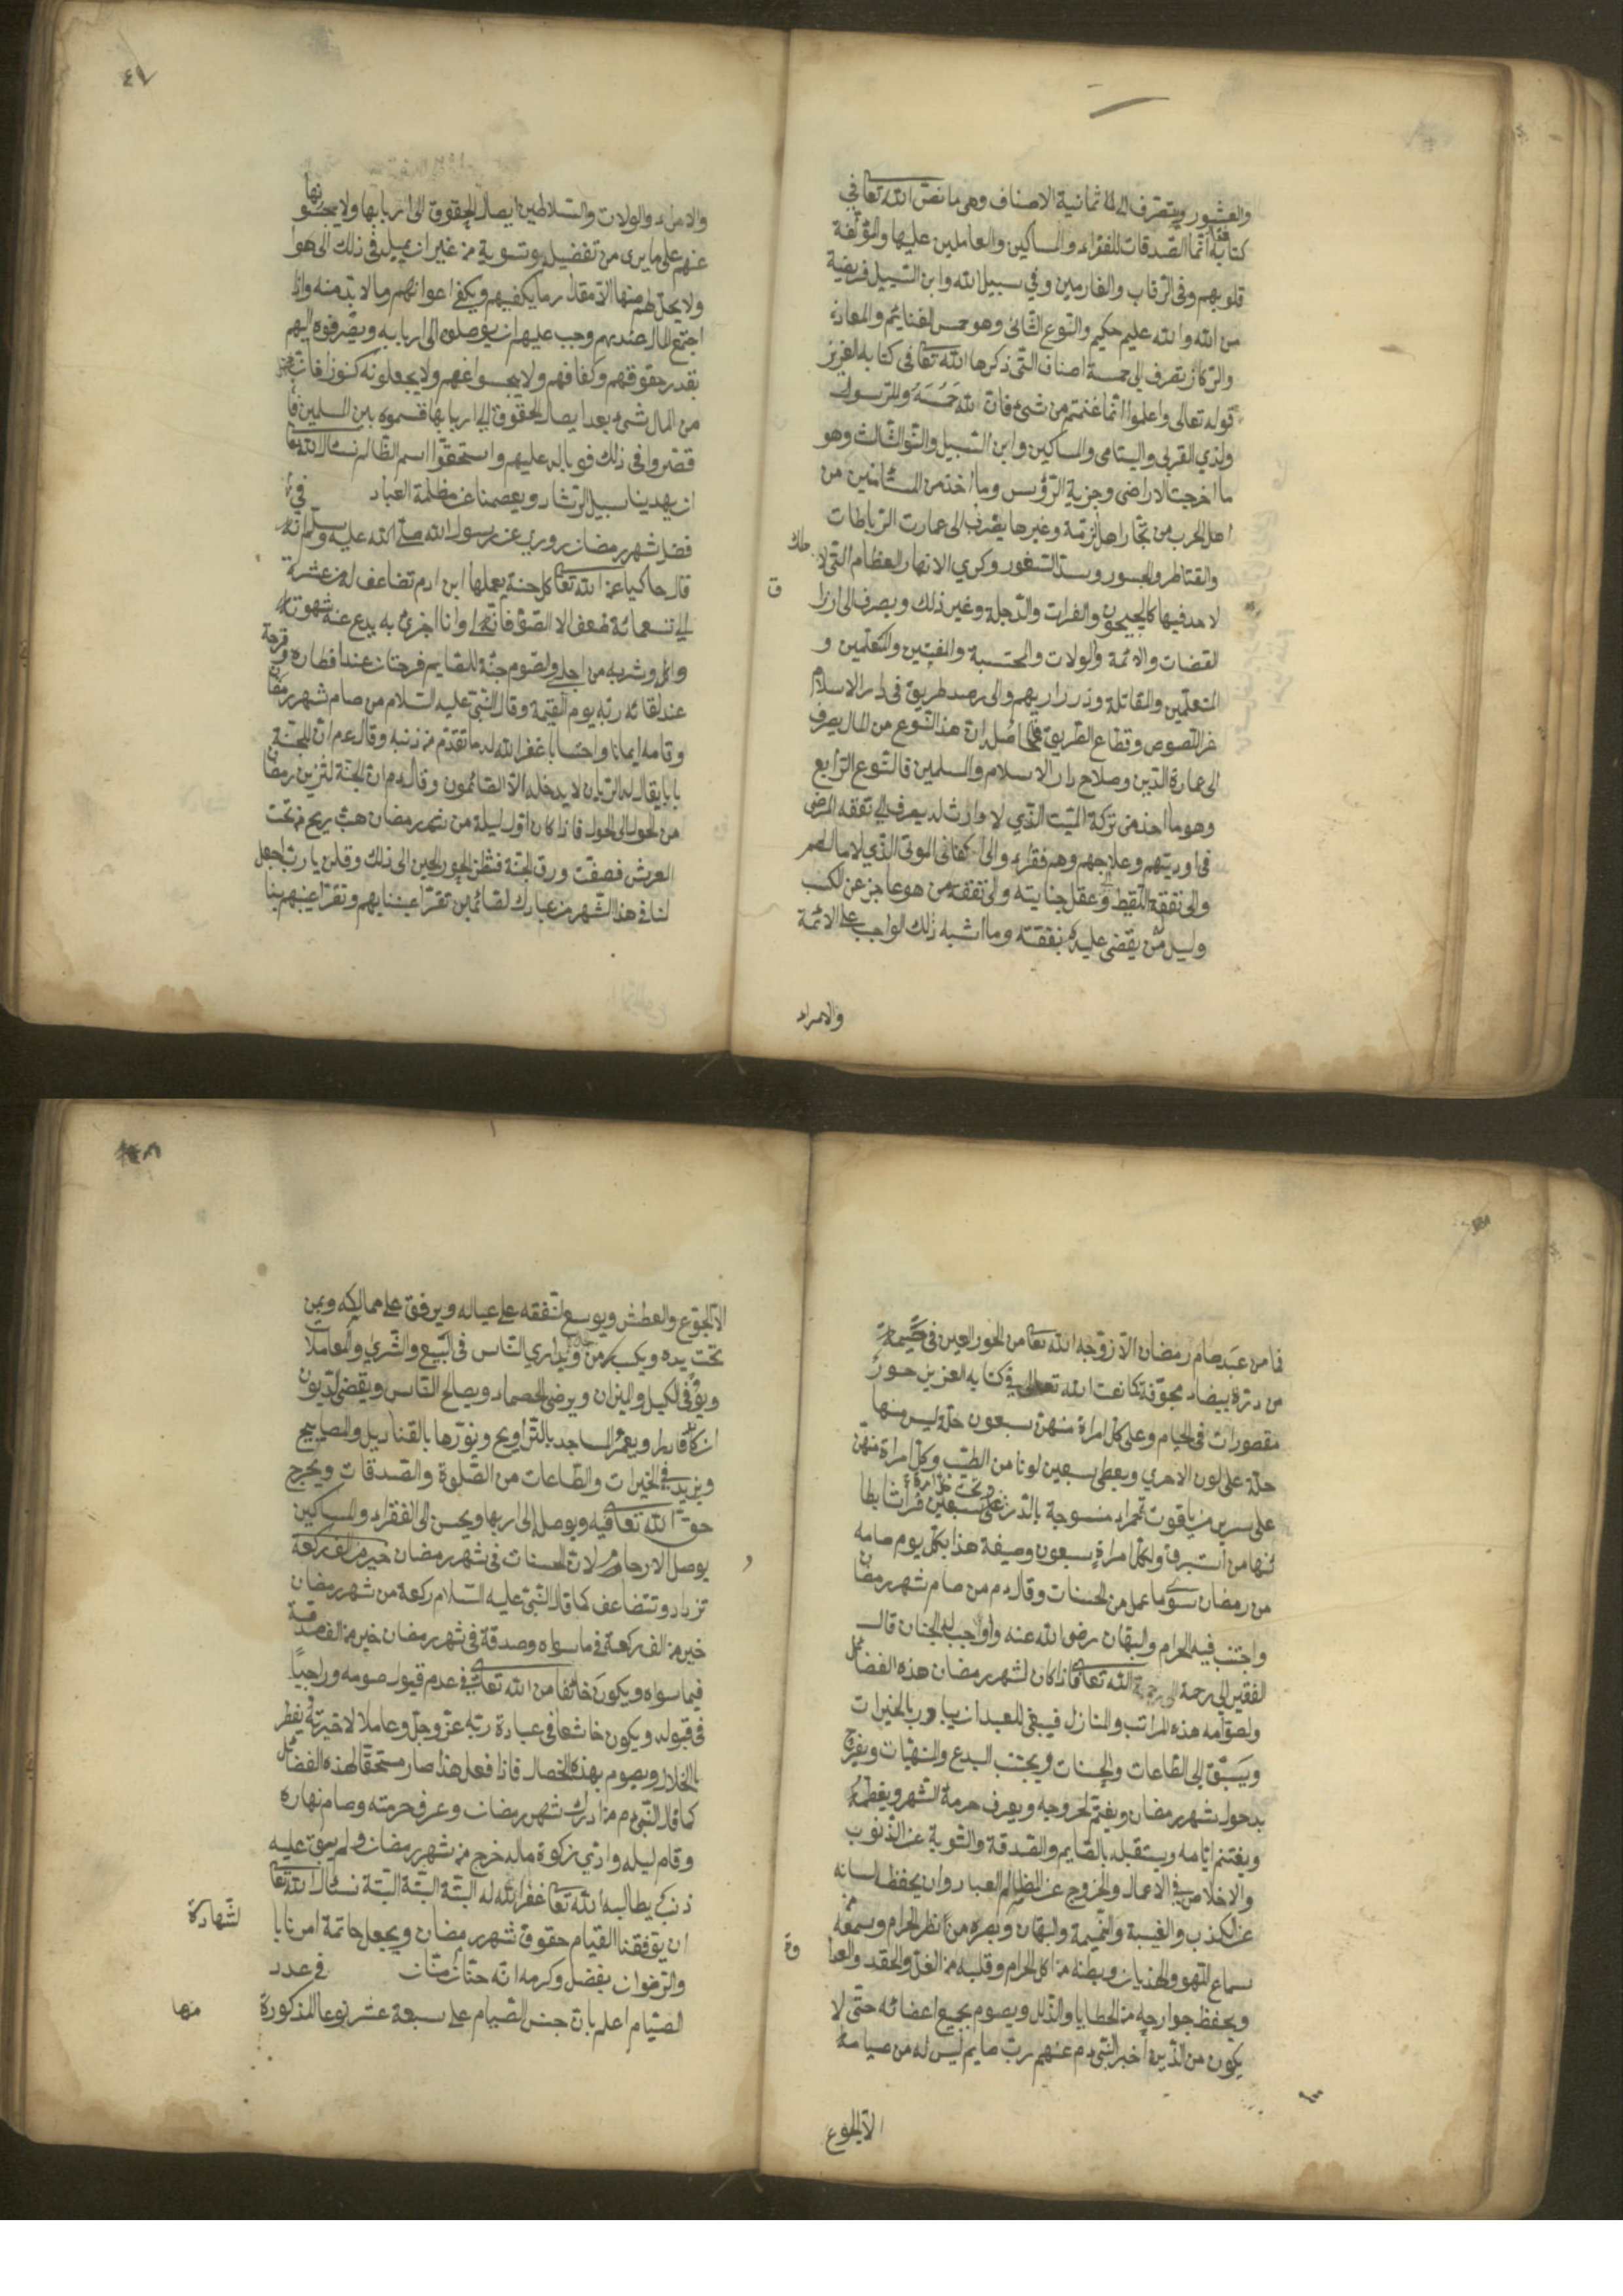 والعشور ويتصرف الى ثمانية الاصناف وهى ما نص الله تعا في
كتابه انما الصدقات للفقراء والمساكين والعاملين عليها والمؤلفة
قلوبهم وفى الرقاب والغارمين وفي سبيل الله وابن السبيل فريضة
من الله والله عليم حكيم والنوع الثانى وهو خمس الغنايم والمعادن
والركاز يتصرف الى خمسة اصناف التى ذكرها الله تعا فى كتابه العزيز
قوله تعالى واعلموا انما غنمتم من شئ فان لله خمسه وللرسول
ولذي القربى واليتامى والمساكين وابن السبيل والنوالثالث وهو
ما اخرجت الاراضى وجزية الرؤس وما اخذ من المستأمنين من
اهل الحرب من تجار اهل الزمة وغيرها يصرف الى عمارت الرباطات
والقناطر والجسور وسد الثغور وكري الانهار العظام التى لا ملك
لاحد فيها كالجيحون والفرات والدجلة وغير ذلك ويصرف الى ارزا ق
القضات والائمة والولات والمحتسبة والمفتين والمتعلمين و
المتعلمين والمقاتلة وذراريهم والى رصد طريق فى دار الاسلام
عن اللصوص وقطاع الطريق ان هذا النوع من المال يصرف
الى عمارة الدين وصلاح دار الاسلام والمسلمين قالنوع الرابع
وهو ما اخذ من تركة الميت الذي لا وارث له يصرف الى نفقه المرضى
فى اوديتهم وعلاجهم وهم فقراء والى اكفانى الموتى الذي لا مال لهم
والى نفقة اللقيط وعقل جنايته والى نفقة من هو عاجز عن الكسب
وليس له من يقضى عليه نفقته وما اشبه ذلك الواجب على الائمة
والامراء
والامراء والولات والسلاطين ايصال الحقوق الى اربابها ولا يحبسونها
عنهم على ما يرى من تفضيل وتسوية من غير ان يميل فى ذلك الى هوا
ولا يحل لهم منها الا مقدار ما يكفيهم ويكفى اعوانهم وما لا بد منه واذا
اجتمع المال عندهم وجب عليهم ان يوصلوه الى اربابه ويصرفوه اليهم
بقدر حقوقهم وكفافهم ولا يجعلونه كنوزا فان
من المال شئ بعد ايصال الحقوق الى اربابها قسموه بين المسلمين فا
قصروا فى ذلك فوباله عليهم واستحقوا اسم الظالم نسئال الله تعا
ان يهدينا سبيل الرشاد ويعصمنا عن مظلمة العباد في
فضل شهر رمضان روري عن رسول الله صلى الله عليه وسلم انه
قال حاكيا عن الله تعا كل حسنة يعملها ابن ادم تضاعف له من عشرة
الى سبعمائة ضعف الا الصوم فانه لى وانا اجزى به يدع عنه شهوته
واكله وشربه من اجلى والصوم جنة للصايم فرحتان عند افطاره وفرحة
عند لقائه ربه يوم القيمة وقال النبى عليه السلام من صام شهر رمضان
وقامه ايمانا واحتسابا غفر الله له ما تقدم من ذنبه وقال عم ان للجنة
بابا يقال له الريان لا يدخله الا الصائمون وقال عم ان الجنة لتزين رمضان
من الحول الى الحول فاذا كان اول ليلة من شهر رمضان هبت ريح من تحت
العرش فصفقت ورق الجنة فنظرن الحور العين الى ذلك وقلن يا رب اجعل
لنا فى هذا الشهر من عبادك لقائمين تقر اعيننا بهم وتقر اعينهم بنا
فما من عبد صام رمضان الا زوجه الله تعا من الحور العين فى خيمة
من درة بيضاء مجوفة كما نعت الله تعالى في كتابه العزيز حور
مقصورات فى الخيام وعلى كل امراة منهن سبعون حلة ليس منها
حلة على لون الاخري ويعطى سبعين لونا من الطيب وكل امراة منهن
على سرير من ياقوت حمراء منسوجة بالدر على سبعين فراشا بطا
ئنها من استبرق ولكل امراة سبعون وصيفة هذا بكل يوم صامه
من رمضان سوى ما عمل من الحسنات وقال عم من صام شهر رمضان
واجتنب فيه الحرام والبهتان رضى الله عنه واوجب له الجنان قال
الفقير الى رحمة الله تعا فاذا كان لشهر رمضان هذه الفضائل
ولصوامه هذه المراتب والمنازل فينبغى للعبد ان يبادر بالخيرات
ويسبق الى الطاعات والحسنات ويجتنب البدع والمنهيات ويفرح
بدخول شهر رمضان ويغتم لخروجه ويعرف حرمة الشهر ويعظمه
ويغتنم ايامه ويستقبله بالقايم والصدقة والتوبة عن الذنوب
والاخلاص في الاعمال والخروج عن المظالم العباد وان يحفظ لسانه
عن الكذب والغيبة والنميمة والبهتان وبصره من نظر الحرام وسمعه عن
سماع اللهو والهذيان وبطنه من اكل الحرام وقلبه من الغل والحقد والعدا وة
ويحفظ جوارحه من الخطايا والذلل ويصوم بجميع اعضائه حتى لا
يكون من الذين اخبر النبى عم عنهم رب صايم ليس له من صيامه
الا الجوع
الا الجوع والعطش ويوسع لنفقه على عياله ويرفق على مماليكه ومن
تحت يده ويداري الناس فى البيع والشري والمعاملات
ويوفى الكيل والميزان ويرضى الخصماء ويصالح الناس ويقضى الديون
ان كان قادرا ويعمر المساجد بالتراويح ونورها بالقناديل والمصابيح
ويزيد في الخيرات والطاعات من الصلوة والصدقات ويخرج
حق الله تعا فيه ويوصل الى اربها ويحسن الى الفقراء والمساكين و
يوصل الارحام لان الحسنات فى شهر رمضان خير من الف ركعة
تزداد وتتضاعف كما قال النبى عليه السلام ركعة من شهر رمضان
خير من الف ركعة فى ما سواه وصدقة فى شهر رمضان خير من الف صدقة
فيما سواه ويكون خائفا من الله تعالى في عدم قبول صومه وراجيا
فى قبوله ويكون خاشعا فى عبادة ربه عز وجل وعاملا لاخرته ويفطر
بالحلال ويصوم بهذه الخصال فاذا فعل هذا صار مستحقا لهذه الفضائل
كما قال النبى عم من ادرك شهر رمضان وعرف حرمته وصام نهاره
وقام ليله وادي زكوة ماله خرج من شهر رمضان ولم يبق عليه
ذنب يطالبه الله تعا غفر الله له البتة البتة البتة نسئال الله تعا
ان يوفقنا القيام حقوق شهر رمضان ويجعل خاتمة امرنا با لشهادة
والرضوان بفضل وكرمه انه حنان منان في عدد
الصيام اعلم بان جنس الصيام على سبعة عشر نوعا المذكورة منها